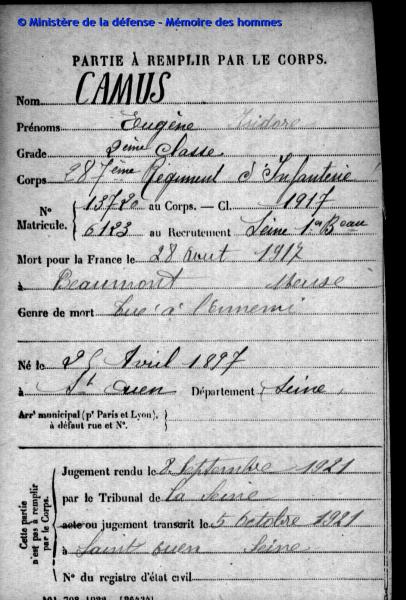 © Ministère de la défense - Mémoire des hommes
PARTIE À REMPLIR PAR LE CORPS.
Nom CAMUS
Prénoms Eugène Isidore
Grade 2ème Classe
Corps 287ème Régiment d'Infanterie
N° Matricule. { 13720 au Corps. — Cl. 1917
6123 au Recrutement Seine 1er Beau
Mort pour la France le 28 août 1917
à Beaumont Meuse
Genre de mort Tué à l'Ennemi
Né le 25 Avril 1897
à St Ouen Département Seine
Arrt municipal (pr Paris et Lyon), à défaut rue et N°. {
Cette partie n'est pas à remplir par le Corps. {
Jugement rendu le 8 Septembre 1921
par le Tribunal de La Seine
acte ou jugement transcrit le 5 octobre 1921
à Saint Ouen Seine
N° du registre d'état civil